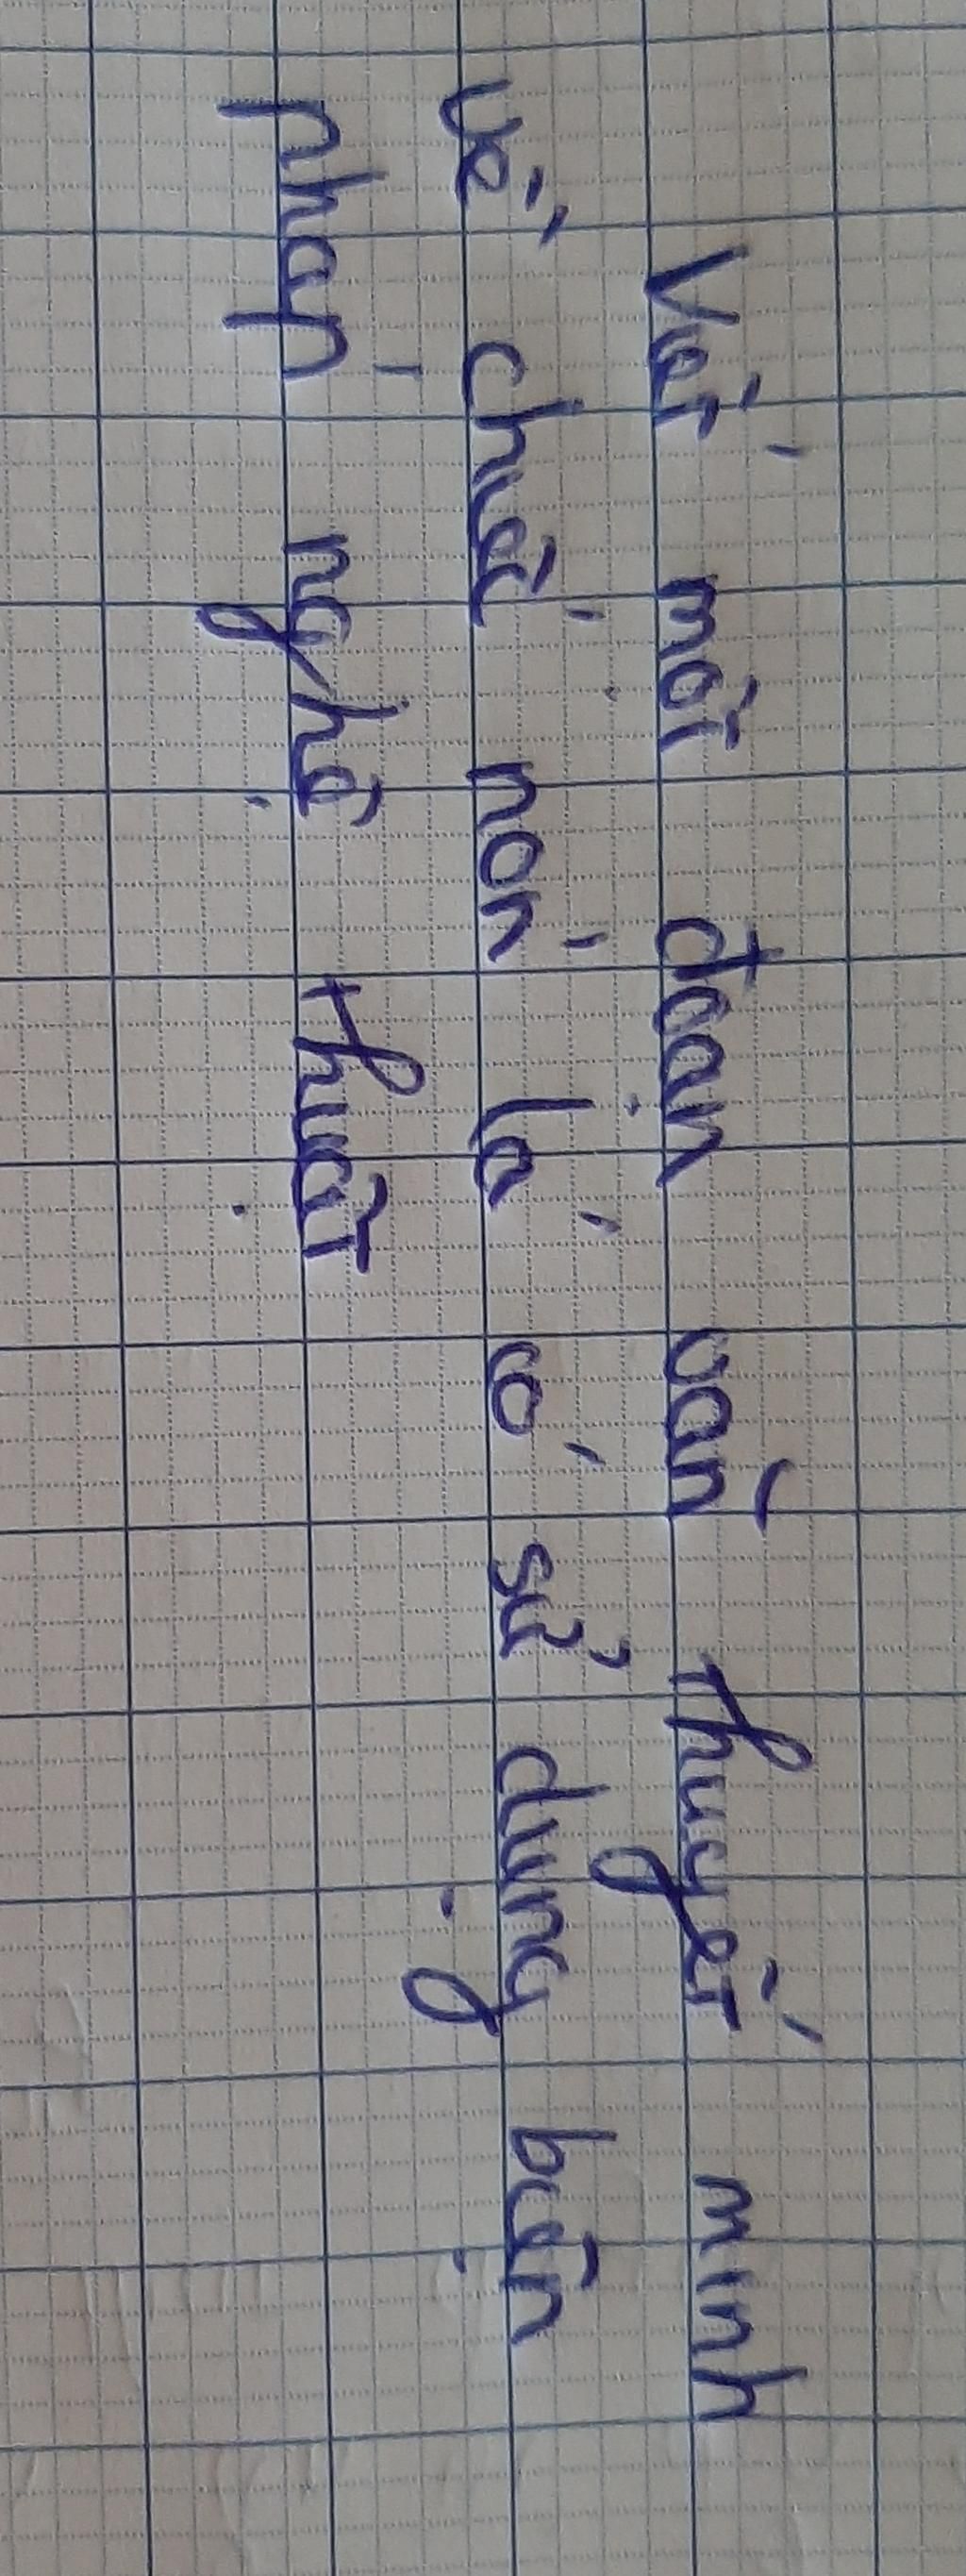 Viết một đoạn văn thuyết minh
về chiếc nón lá có sử dụng biện
pháp nghệ thuật